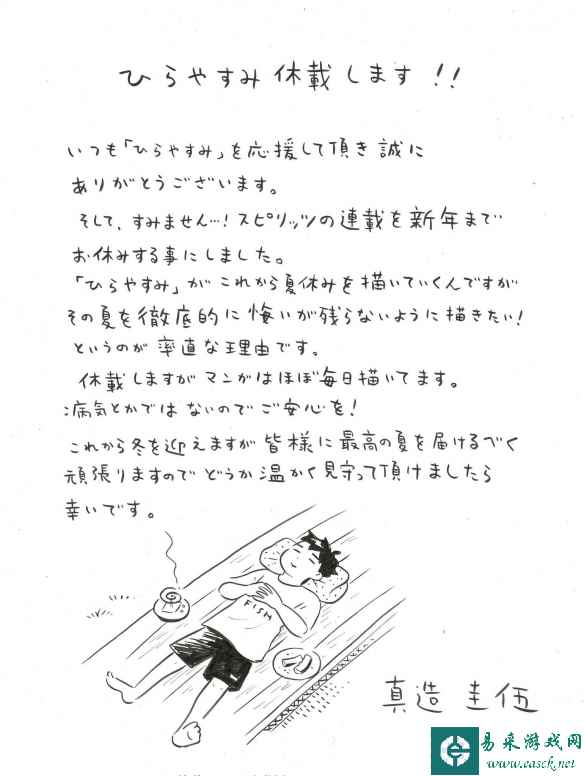 ひらやすみ 休載します!!
いつも「ひらやすみ」を応援して頂き 誠に
ありがとうございます。
そして、すみません…!スピリッツの連載を新年まで
お休みする事にしました。
「ひらやすみ」が これから夏休みを描いていくんですが
その夏を徹底的に 悔いが残らないように描きたい!
というのが 率直な理由です。
休載しますが マンガはほぼ毎日描いてます。
病気とかでは ないので ご安心を!
これから冬を迎えますが 皆様に 最高の夏を届けるべく
頑張りますので どうか温かく見守って頂けましたら
幸いです。
FISH
真造 圭伍
易采游戏网
www.easck.net